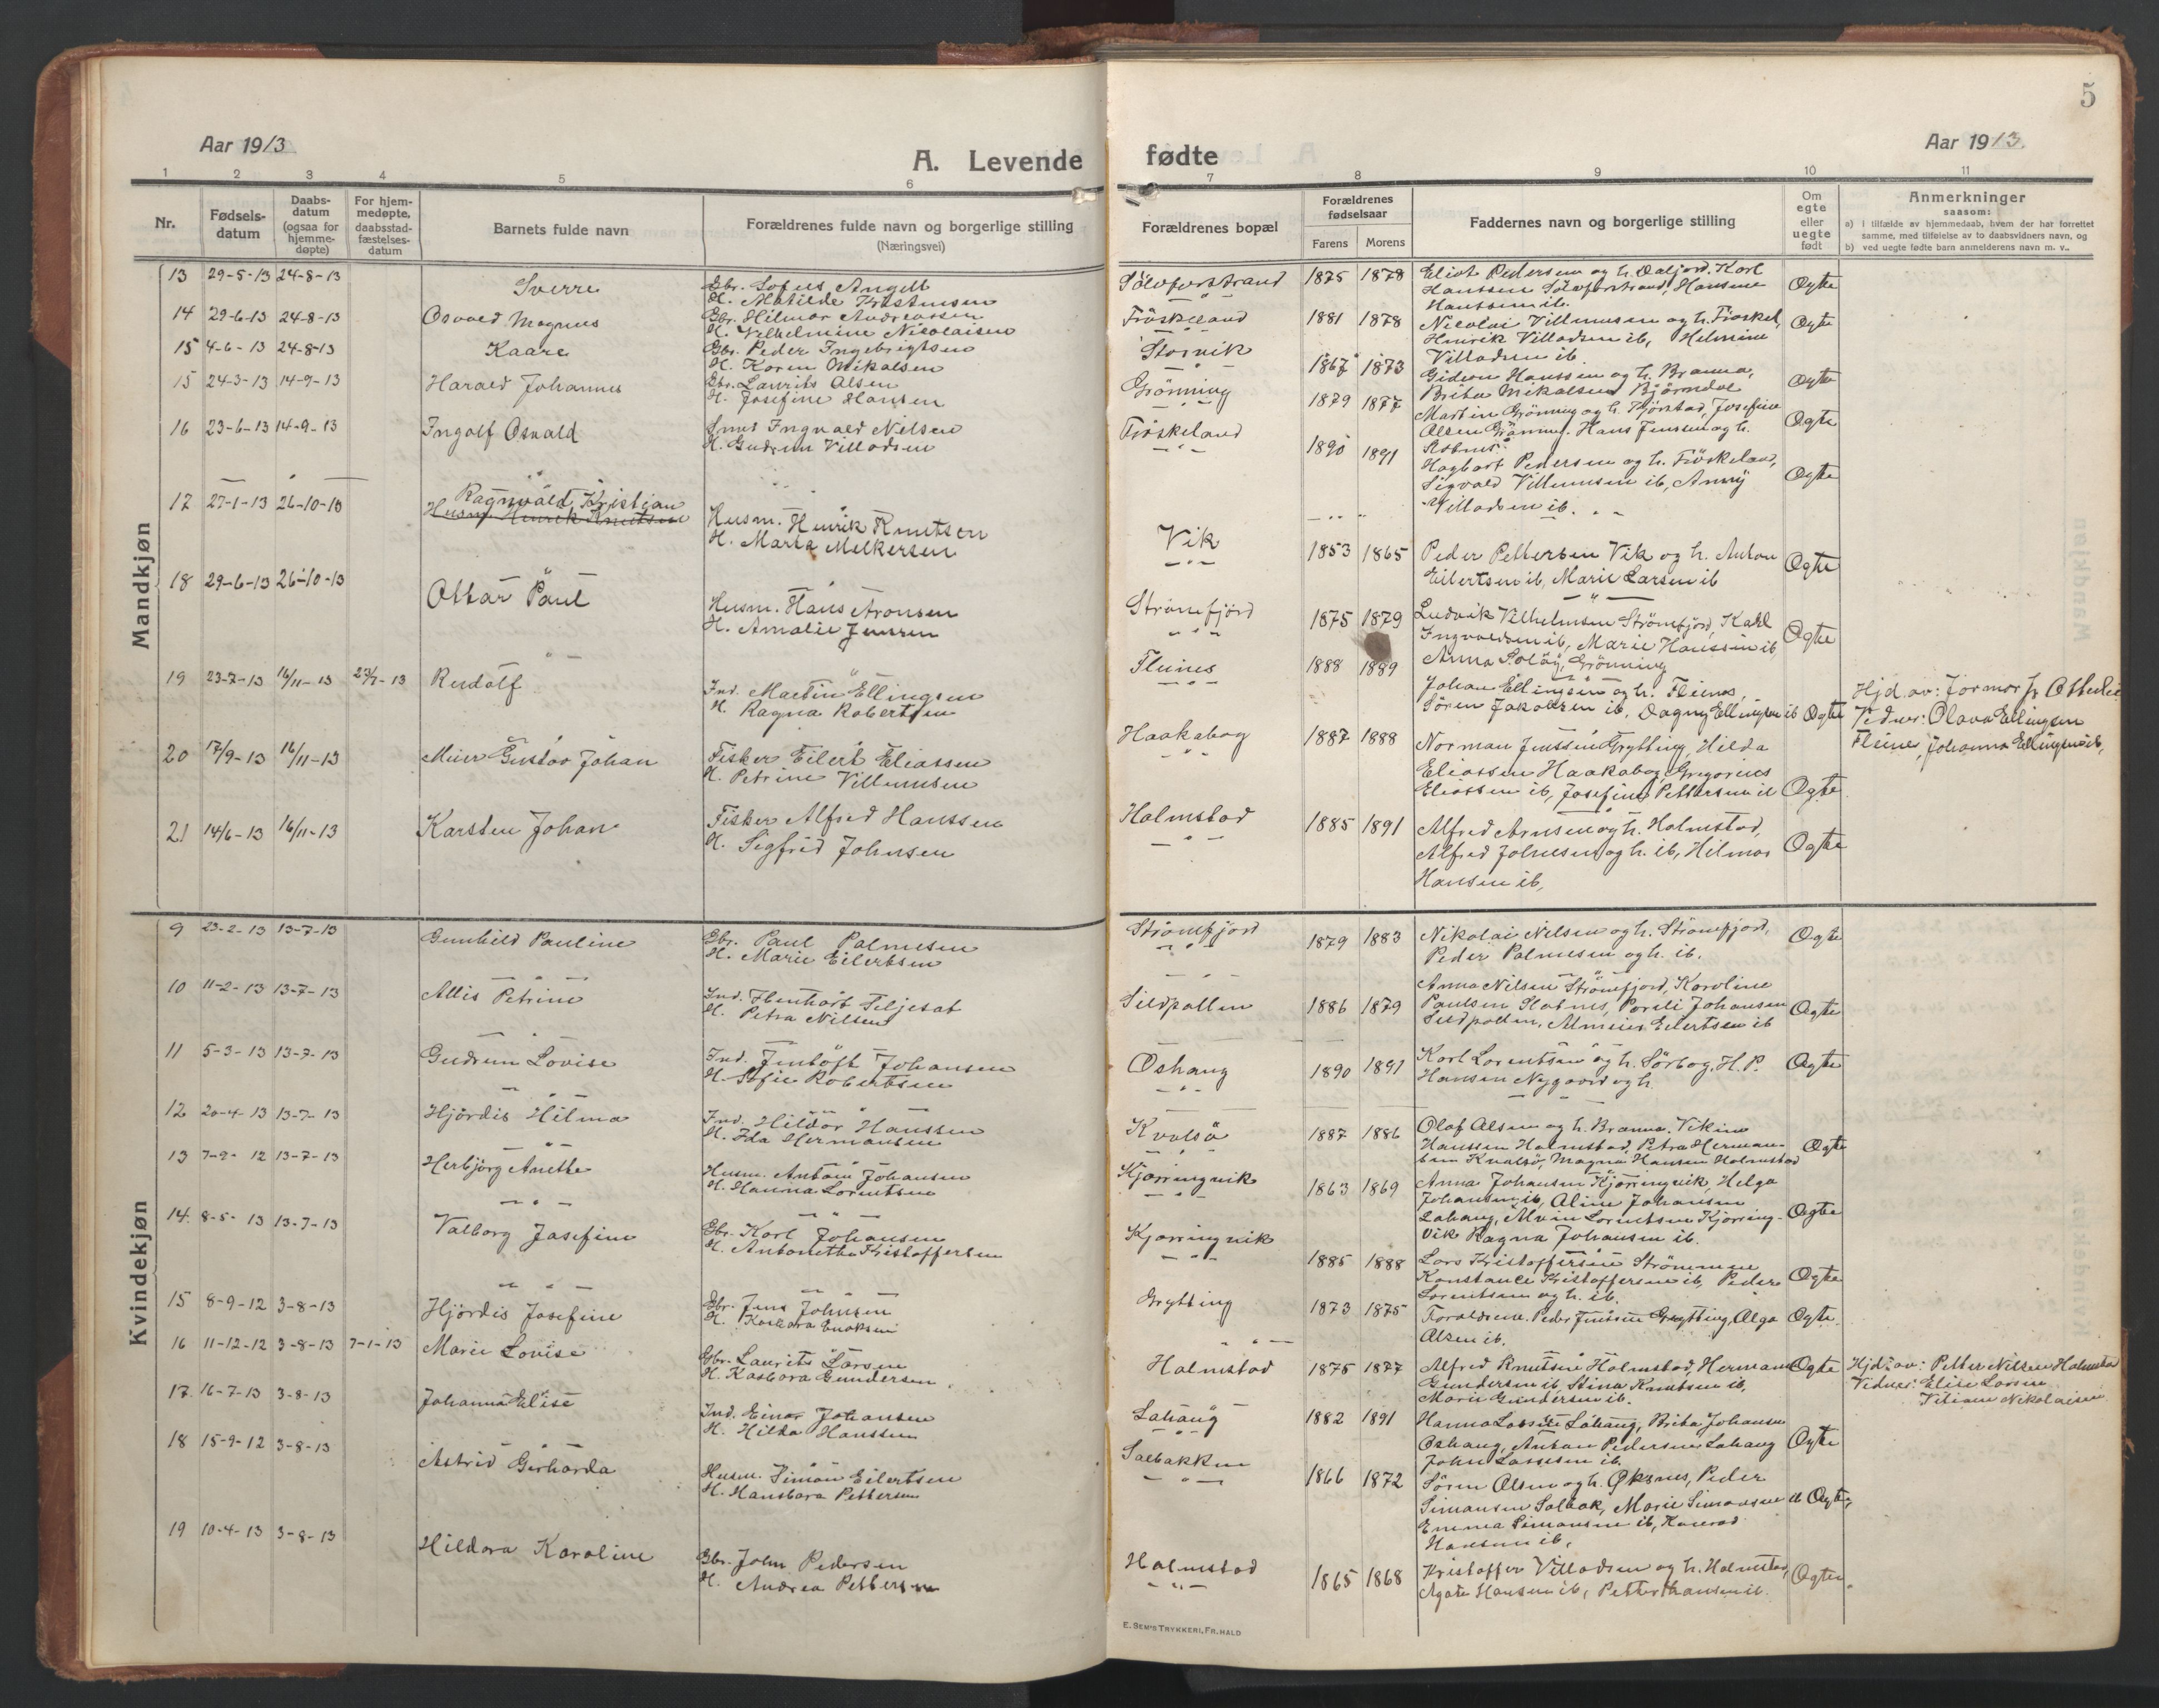 5
Aar 1913
A. Levende
fødte
Aar 1913.
1 2 3 4 5 6
7 8 9 10 11
Nr.
Fødsels-datum
Daabs-datum (ogsaa for hjemme-døpte)
For hjem-medøpte, daabsstad-fæstelses-datum
Barnets fulde navn
Forældrenes fulde navn og borgerlige stilling
(Næringsvei)
Forældrenes bopæl
Forældrenes fødselsaar
Farens Morens
Faddernes navn og borgerlige stilling
Om egte eller uegte født
Anmerkninger
saasom:
a) i tilfælde av hjemmedaab, hvem der har forrettet
samme, med tilføielse av to daabsvidners navn, og
b) ved uegte fødte barn anmelderens navn m. v..
Mandkjøn
13 29-5-13 24-8-13 Sverre
Gbr. Sofus Angell
H. Matilde Kristensen
Sölvforstrand 1875 1878
Eliot Pedersen og h. Daljord, Karl
Hanssen Sölvforstrand, Hansine
Hanssen ib.
Ogte
14 29-6-13 24-8-13 Osvald Magnus
Gbr. Hilmar Andreassen
H. Vilhelmine Nicolaisen
Fröskeland 1881 1878
Nicolai Villumsen og h. Fröskel,
Henrik Villadsen ib, Helmine
Villadsen ib.
Ogte
15 4-6-13 24-8-13 Kaare
Gbr. Peder Ingebrigtsen
H. Karen Mikalsen
Storvik 1867 1873
Gideon Hanssen og h. Branna,
Brita Mikalsen Björndal
Ogte
15 24-3-13 14-9-13 Harald Johannes
Gbr. Laurits Alsen
H. Josefine Hansen
Grönning 1879 1877
Martin Grönning og h. Hjörstad, Josefine
Olsen Grönning. Hans Jenssen og h.
Ogte
16 23-6-13 14-9-13 Ingolf Osvald
Ingvald Nilsen
H. Gudrun Villadsen
Fröskeland 1890 1891
Hagbart Pedersen og h. Fröskeland,
Sigvald Villumsen ib, Anny
Villadsen ib.
Ogte
17 27-1-13 26-10-13 Ragnvald Kristian
Husm. Henrik Knutsen
Husm. Henrik Knutsen
H. Marta Melkersen
Vik 1853 1865
Peder Pettersen Vik og h. Anton
Eilertsen ib, Marie Larsen ib
Ogte
18 29-6-13 26-10-13 Ottar Paul
Husm. Hans Aronsen
H. Amalie Jensen
Strömfjord 1875 1879
Ludvik Vilhelmsen Strömfjord, Kahl
Ingvaldsen ib, Marie Hanssen ib
Anna Soløy, Grönning
Ogte
19 23-7-13 16/11-13 27/7-13 Rudolf
Ind. Martin Ellingsen
H. Ragna Robertsen
Fleines 1888 1889
Johan Ellingsen og h. Fleines,
Sören Jakobsen ib, Dagny Ellingsen ib
Ogte
Hjd. av: Jormor
Vidner: Olava Ellingsen
Fleine, Johanna Ellingsen ib,
20 17/9-13 16/11-13 Meier Gustav Johan
Fisker Eilert Eliassen
H. Petrine Villumsen
Haakabog 1887 1888
Norman Jenssen Grytting, Hilda
Eliassen Haakabog, Gregorius
Eliassen ib, Josefine Pettersen ib
Ogte
21 14/6-13 16/11-13 Karsten Johan
Fisker Alfred Hanssen
H. Sigfrid Johnsen
Holmstad 1885 1891
Alfred Arnsen og h. Holmstad,
Alfred Johnsen og h. ib, Hilmar
Hansen ib,
Ogte
Kvindekjøn
9 23-2-13 13-7-13 Gunhild Pauline
Gbr. Paul Palmesen
H. Marie Eilertsen
Strömfjord 1879 1883
Nikolai Nilsen og h. Strömfjord,
Peder Palmesen og h. ib.
Ogte
10 11-2-13 13-7-13 Allis Petrine
Ind. Seljesat
H. Petra Nilsen
Sildpollen 1886 1879
Anna Nilsen Strömfjord, Karoline
Paulsen Slotnes, Johansen
Sildpollen, Eilertsen ib
Ogte
11 5-3-13 13-7-13 Gudrun Lovise
Ind. Jentoft Johansen
H. Sofie Robertsen
Oshaug 1890 1891
Karl Lorentsen og h. Sörbog, H. P.
Hansen Nygaard og h.
Ogte
12 20-4-13 13-7-13 Hjördis Hilma
Ind. Hildor Hanssen
H. Ida Hermansen
Kvalsö 1887 1886
Olaf Alsen og h. Branna, Vikine
Hanssen Holmstad, Petra Herman-
sen Kvalsö, Magna Hansen Holmstad
Ogte
13 7-9-12 13-7-13 Herbjörg Anethe
Husm. Anton Johansen
H. Hanna Lorentsen
Kjörringvik 1863 1869
Anna Johansen Kjörringvik, Helga
Johansen ib, Aline Johansen
Lahaug, Alvin Lorentsen Kjörring-
vik Ragna Johansen ib.
Ogte
14. 8-5-13 13-7-13 Valborg Josefine
Gbr. Karl Johansen
H. Antonethe Kristoffersen
Kjörringvik 1885 1888
Lars Kristoffersen Strömmen
Konstance Kristoffersen ib, Peder
Lorentsen og h. ib.
Ogte
15 8-9-12 3-8-13 Hjördis Josefine
Gbr. Jens Johnsen
H. Kasbara Enoksen
Grytting 1873 1875
Foreldrene. Peder Jentsen Grytting, Olga
Alsen ib.
Ogte.
16 11-12-12 3-8-13 7-1-13 Marie Lovise
Gbr. Laurits Larsen
H. Kasbara Gundersen
Holmstad 1875 1877
Alfred Knutsen Holmstad, Herman
Gundersen ib, Stina Knutsen ib,
Marie Gundersen ib.
Ogte
Hjd. av: Petter Nilsen Holmstad
Vidner: Elise Larsen
Viliam Nikolaisen
17. 16-7-13 3-8-13 Johanna Elise
Ind. Einar Johansen
H. Hilda Hanssen
Lahaug 1882 1891
Hanna Lahaug, Brita Johansen
Oshaug, Anton Pedersen Lahaug
John Lassesen ib.
Ogte
18 15-9-12 3-8-13 Astrid Gerharda
Husm. Simon Eilertsen
H. Hansbara Pettersen
Salbakken 1866 1872
Sören Olsen og h. Øksnes, Peder
Simonsen Salbak, Marie Simonsen ib
Emma Simonsen ib, Konrad
Hansen ib,
Ogte,
19 10-4-13 3-8-13 Hildora Karoline
Gbr. John Pedersen
H. Andrea Pettersen
Holmstad 1865 1868
Kristoffer Villadsen og h. Holmstad,
Agate Hansen ib, Petter Hansen ib.
Ogte.
E. SEM'S TRYKKERI, FR.HALD